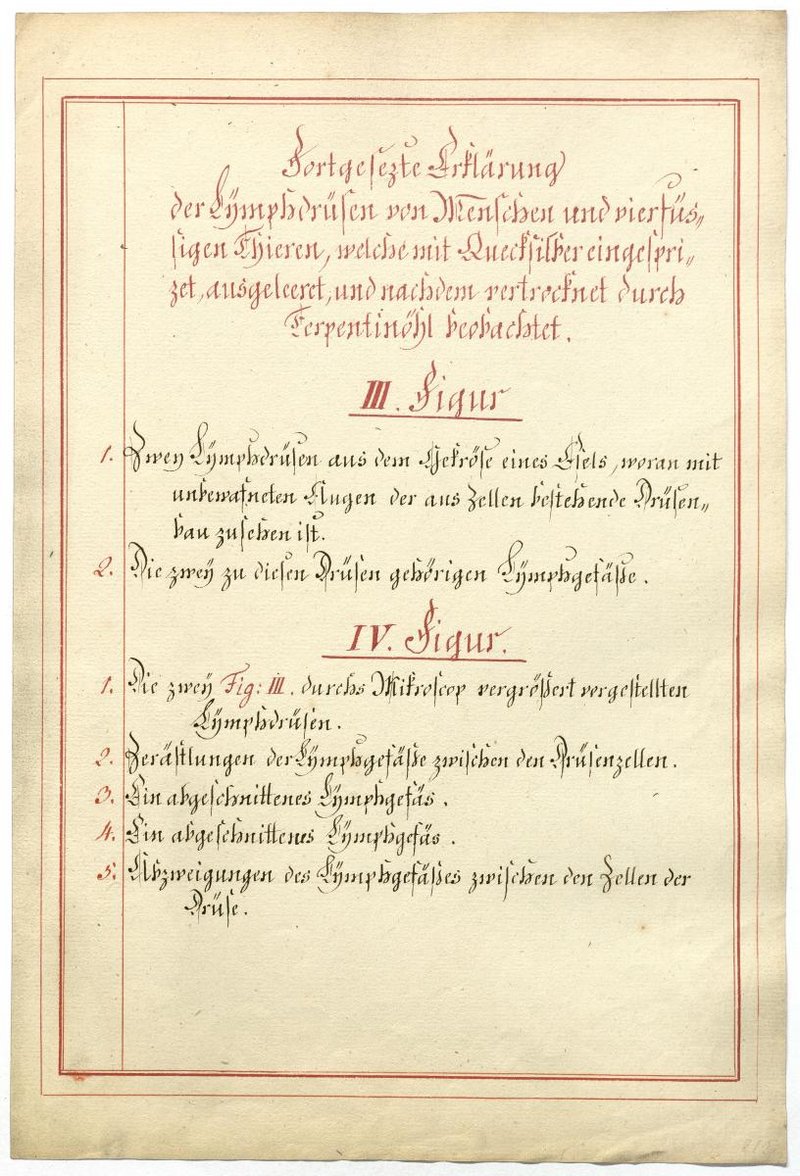 Fortgesezte Erklärung
der Lÿmphdrüsen von Menschen und vierfüs„
sigen Thieren, welche mit Quecksilber eingespri„
zet, ausgeleeret, und nachdem vertrocknet durch
Terpentinöhl beobachtet.
III. Figur
1. Zwey Lÿmphdrüsen aus dem Gekröse eines Esels, woran mit
unbewafneten Augen der aus Zellen bestehende Drüsen„
bau zusehen ist.
2. Die zweÿ zu diesen Drüsen gehörigen Lÿmphgefäße.
IV. Figur.
1. Die zweÿ Fig: III. durchs Mikroscop vergrößert vorgestellten
Lÿmphdrüsen.
2. Zerästlungen der Lÿmphgefäße zwischen den Drüsenzellen.
3. Ein abgeschnittenes Lÿmphgefäs.
4. Ein abgeschnittenes Lÿmphgefäs.
5. Abzweigungen des Lÿmphgefäßes zwischen den Zellen der
Drüse.